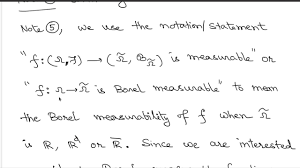 Note ⑤, we use the notation/statement
"f: (Ω, 𝓕) → (Ω̃, 𝓑_Ω̃) is measurable" or
"f: Ω → Ω̃ is Borel measurable" to mean
the Borel measurability of f when Ω̃
is ℝ, ℝᵈ or ℝ̄. Since we are interested